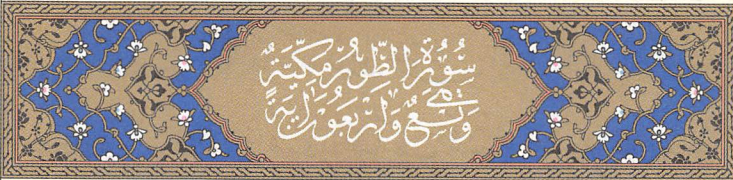 سُورَةُ الطُّورِ مَكِّيَّةٌ
وَهِيَ تِسْعٌ وَأَرْبَعُونَ آيَةً